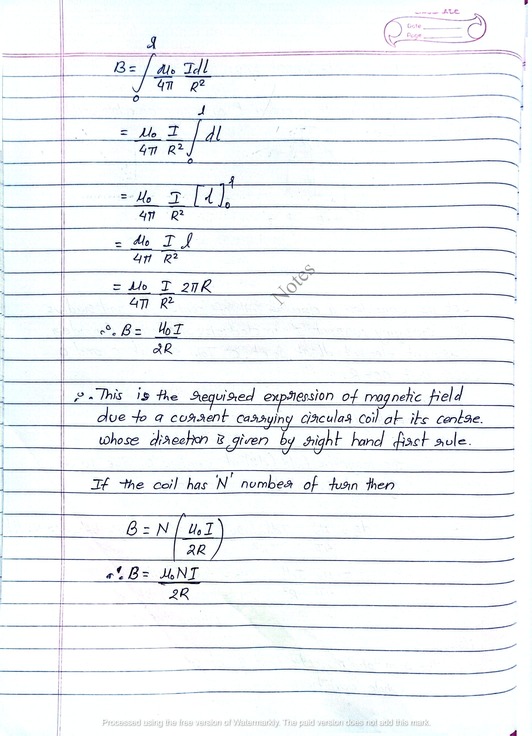 Date
Page
B = ∫₀ˡ μ₀/4π Idl/R²
= μ₀/4π I/R² ∫₀ˡ dl
= μ₀/4π I/R² [l]₀ˡ
= μ₀/4π I/R² l
= μ₀/4π I/R² 2πR
∴ B = μ₀I/2R
Notes
∴ This is the required expression of magnetic field
due to a current carrying circular coil at its centre.
whose direction is given by right hand first rule.
If the coil has 'N' number of turn then
B = N (μ₀I/2R)
∴ B = μ₀NI/2R
Processed using the free version of Watermarkly. The paid version does not add this mark.